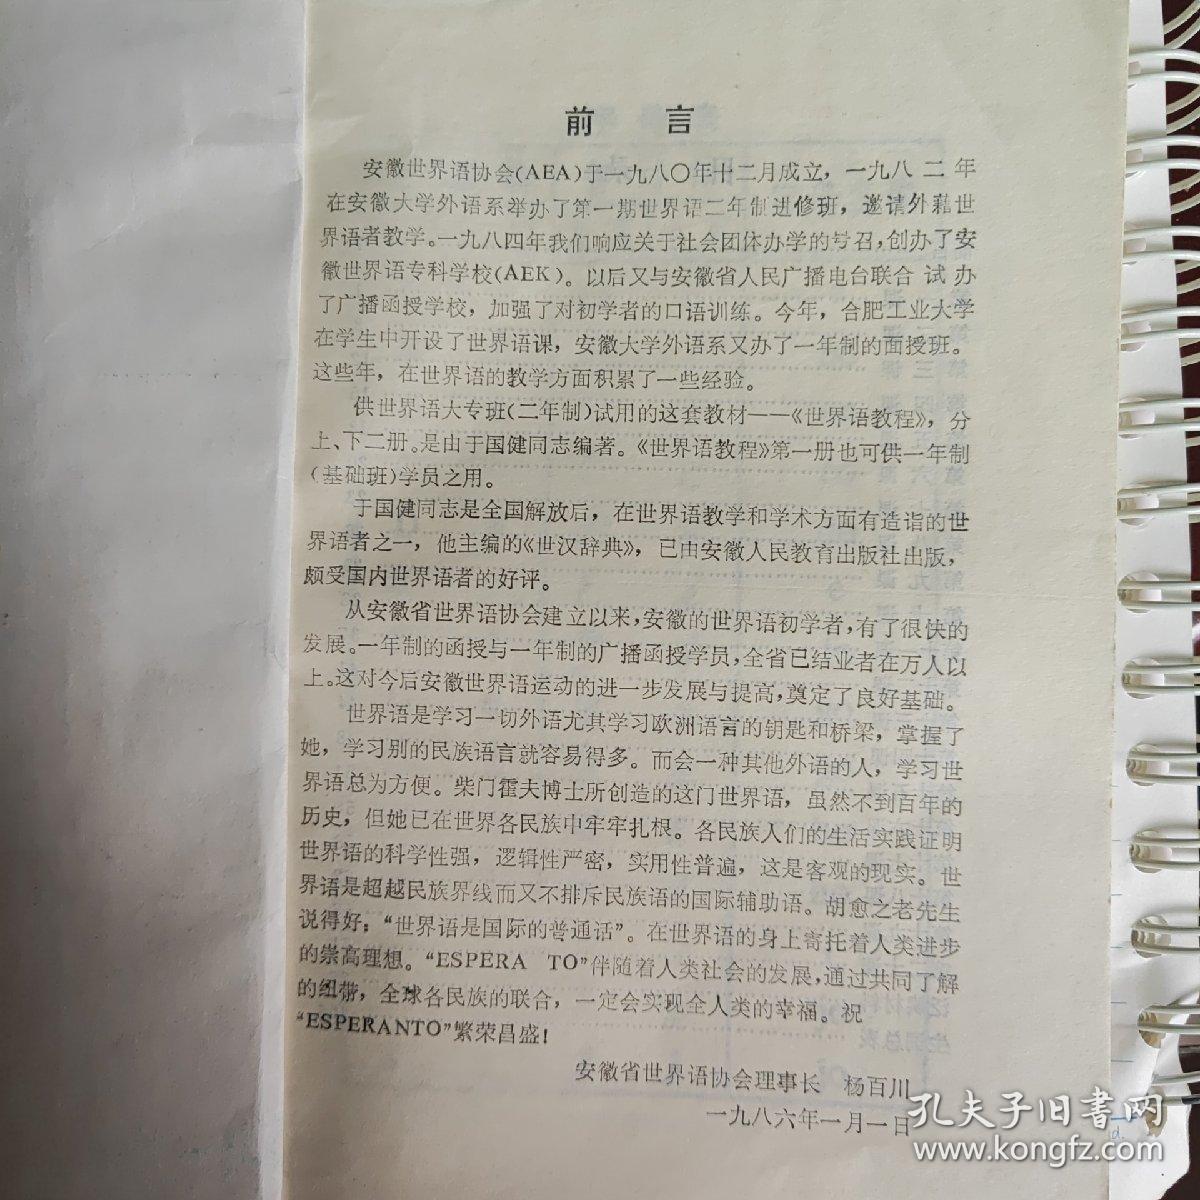 前 言
安徽世界语协会(AEA)于一九八〇年十二月成立，一九八二年
在安徽大学外语系举办了第一期世界语二年制进修班，邀请外籍世
界语者教学。一九八四年我们响应关于社会团体办学的号召，创办了安
徽世界语专科学校(AEK)。以后又与安徽省人民广播电台联合试办
了广播函授学校，加强了对初学者的口语训练。今年，合肥工业大学
在学生中开设了世界语课，安徽大学外语系又办了一年制的面授班。
这些年，在世界语的教学方面积累了一些经验。
供世界语大专班(二年制)试用的这套教材——《世界语教程》，分
上、下二册。是由于国健同志编著。《世界语教程》第一册也可供一年制
(基础班)学员之用。
于国健同志是全国解放后，在世界语教学和学术方面有造诣的世
界语者之一，他主编的《世汉辞典》，已由安徽人民教育出版社出版，
颇受国内世界语者的好评。
从安徽省世界语协会建立以来，安徽的世界语初学者，有了很快的
发展。一年制的函授与一年制的广播函授学员，全省已结业者在万人以
上。这对今后安徽世界语运动的进一步发展与提高，奠定了良好基础。
世界语是学习一切外语尤其学习欧洲语言的钥匙和桥梁，掌握了
她，学习别的民族语言就容易得多。而会一种其他外语的人，学习世
界语总为方便。柴门霍夫博士所创造的这门世界语，虽然不到百年的
历史，但她已在世界各民族中牢牢扎根。各民族人们的生活实践证明
世界语的科学性强，逻辑性严密，实用性普遍，这是客观的现实。世
界语是超越民族界线而又不排斥民族语的国际辅助语。胡愈之老先生
说得好：“世界语是国际的普通话”。在世界语的身上寄托着人类进步
的崇高理想。“ESPERA TO”伴随着人类社会的发展，通过共同了解
的纽带，全球各民族的联合，一定会实现全人类的幸福。祝
“ESPERANTO”繁荣昌盛！
安徽省世界语协会理事长 杨百川
一九八六年一月一日
孔夫子旧书网
www.kongfz.com